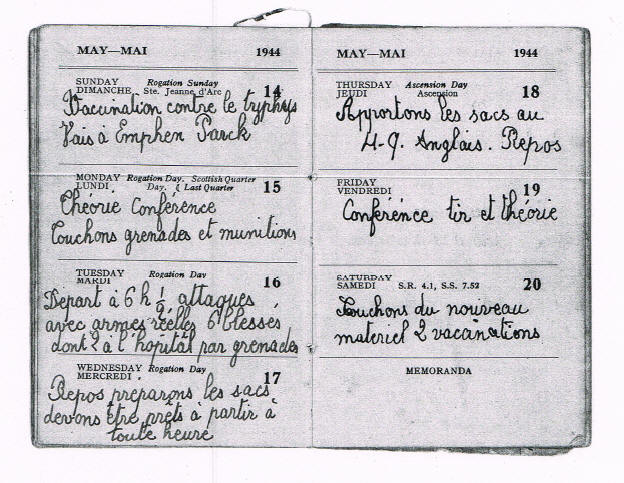 MAY—MAI 1944
SUNDAY Rogation Sunday 14
DIMANCHE Ste. Jeanne d'Arc
Vaccination contre le tryphus
Vais à Emphen Parck
MONDAY Rogation Day. Scottish Quarter 15
LUNDI Day. ☾ Last Quarter
Théorie Conférence
Touchons grenades et munitions
TUESDAY Rogation Day 16
MARDI
Départ à 6 h ½ attaques
avec armes réelles 6 blessés
dont 2 à l'hopital par grenades
WEDNESDAY Rogation Day 17
MERCREDI
Repos préparons les sacs,
devons être prêts à partir à
toute heure
MAY—MAI 1944
THURSDAY Ascension Day 18
JEUDI Ascension
Apportons les sacs au
4-9. Anglais. Repos
FRIDAY 19
VENDREDI
Conférence tir et théorie
SATURDAY 20
SAMEDI S.R. 4.1, S.S. 7.52
Touchons du nouveau
materiel 2 vacanations
MEMORANDA